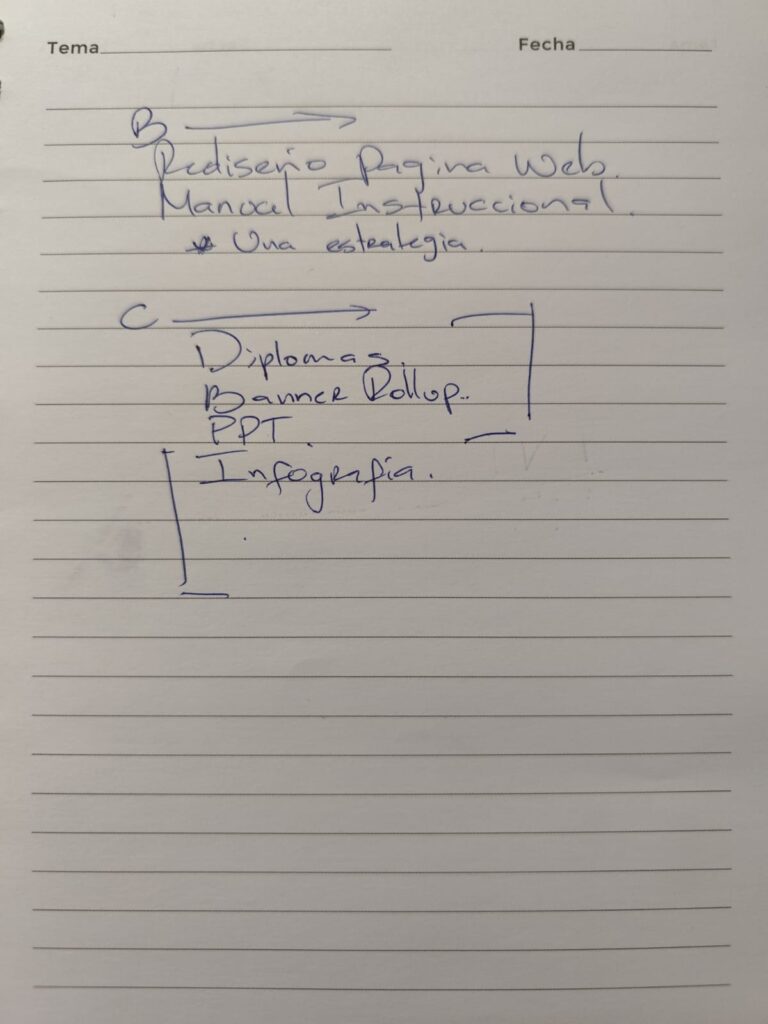 Tema Fecha
B →
Rediseño Pagina Web.
Manual Instruccional.
* Una estrategia.
C →
Diplomas.
Banner Rollup..
PPT.
Infografía.